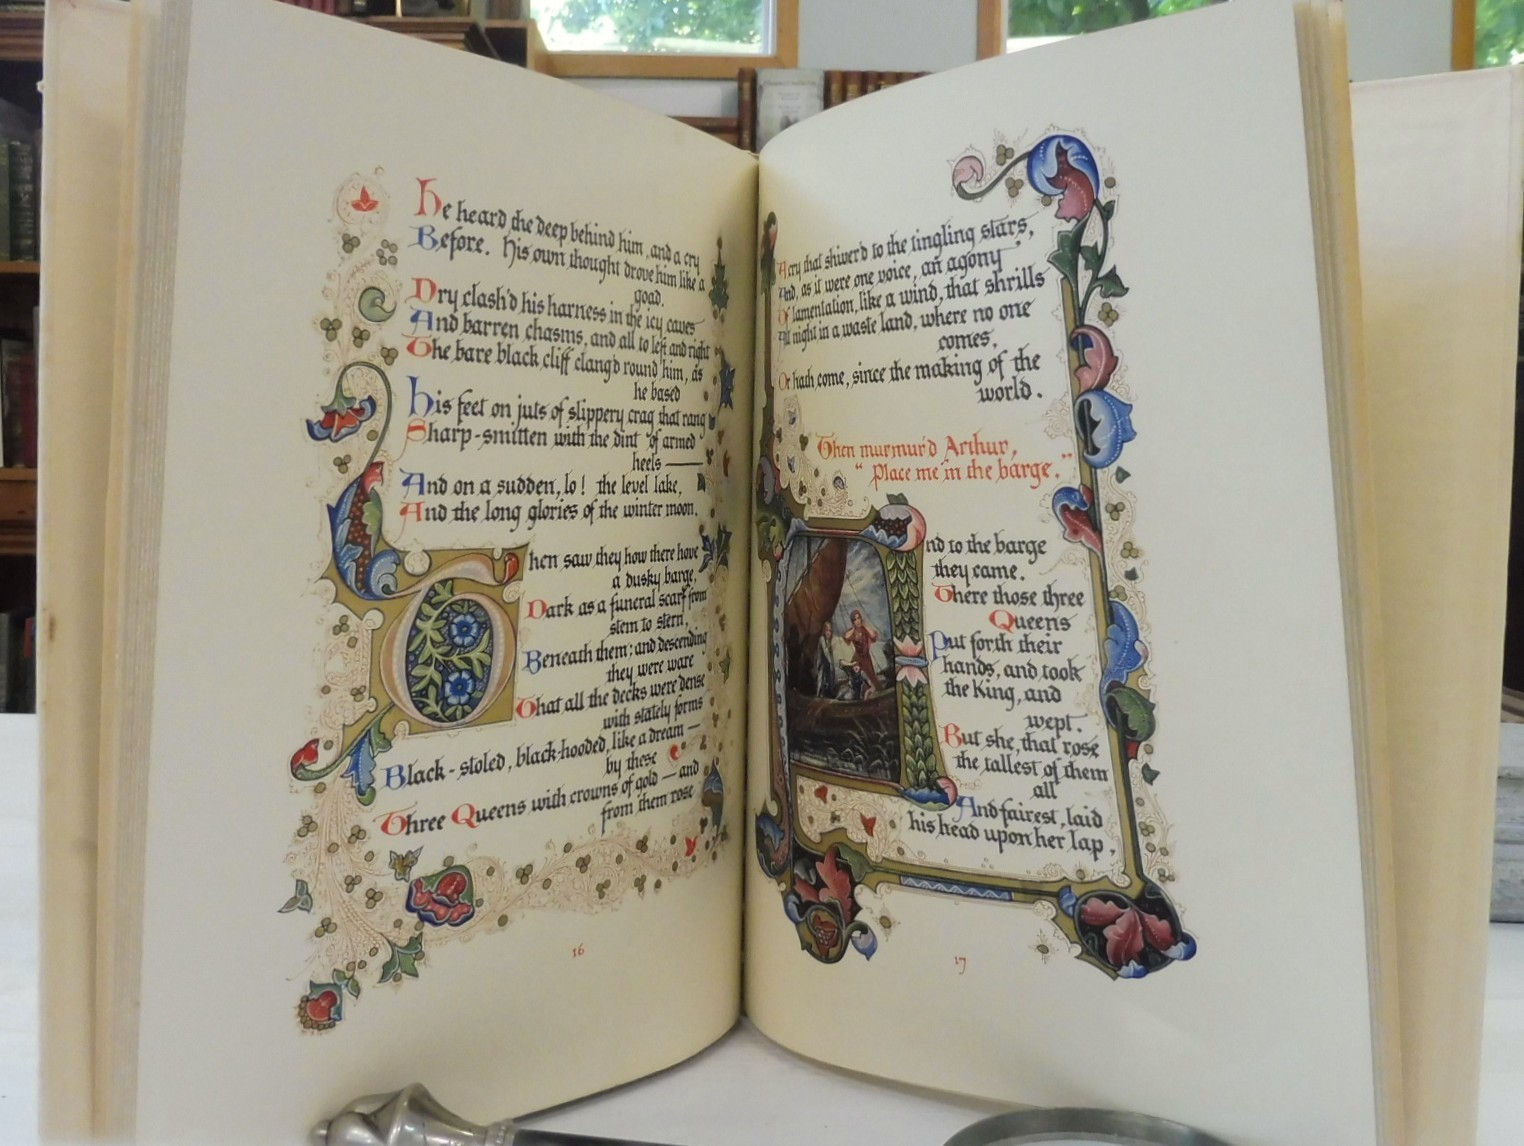 He heard the deep behind him, and a cry
Before. His own thought drove him like a
goad.
Dry clash'd his harness in the icy caves
And barren chasms, and all to left and right
The bare black cliff clang'd round him, as
he based
His feet on juts of slippery crag that rang
Sharp-smitten with the dint of armed
heels —
And on a sudden, lo! the level lake,
And the long glories of the winter moon.
Then saw they how there hove
a dusky barge,
Dark as a funeral scarf from
stem to stern,
Beneath them; and descending
they were ware
That all the decks were dense
with stately forms
Black-stoled, black-hooded, like a dream —
by these
Three Queens with crowns of gold — and
from them rose
16
A cry that shiver'd to the tingling stars,
And, as it were one voice, an agony
Of lamentation, like a wind, that shrills
All night in a waste land, where no one
comes,
Or hath come, since the making of the
world.
Then murmur'd Arthur,
"Place me in the barge."
And to the barge
they came.
There those three
Queens
Put forth their
hands, and took
the King, and
wept.
But she, that rose
the tallest of them
all
And fairest, laid
his head upon her lap,
17